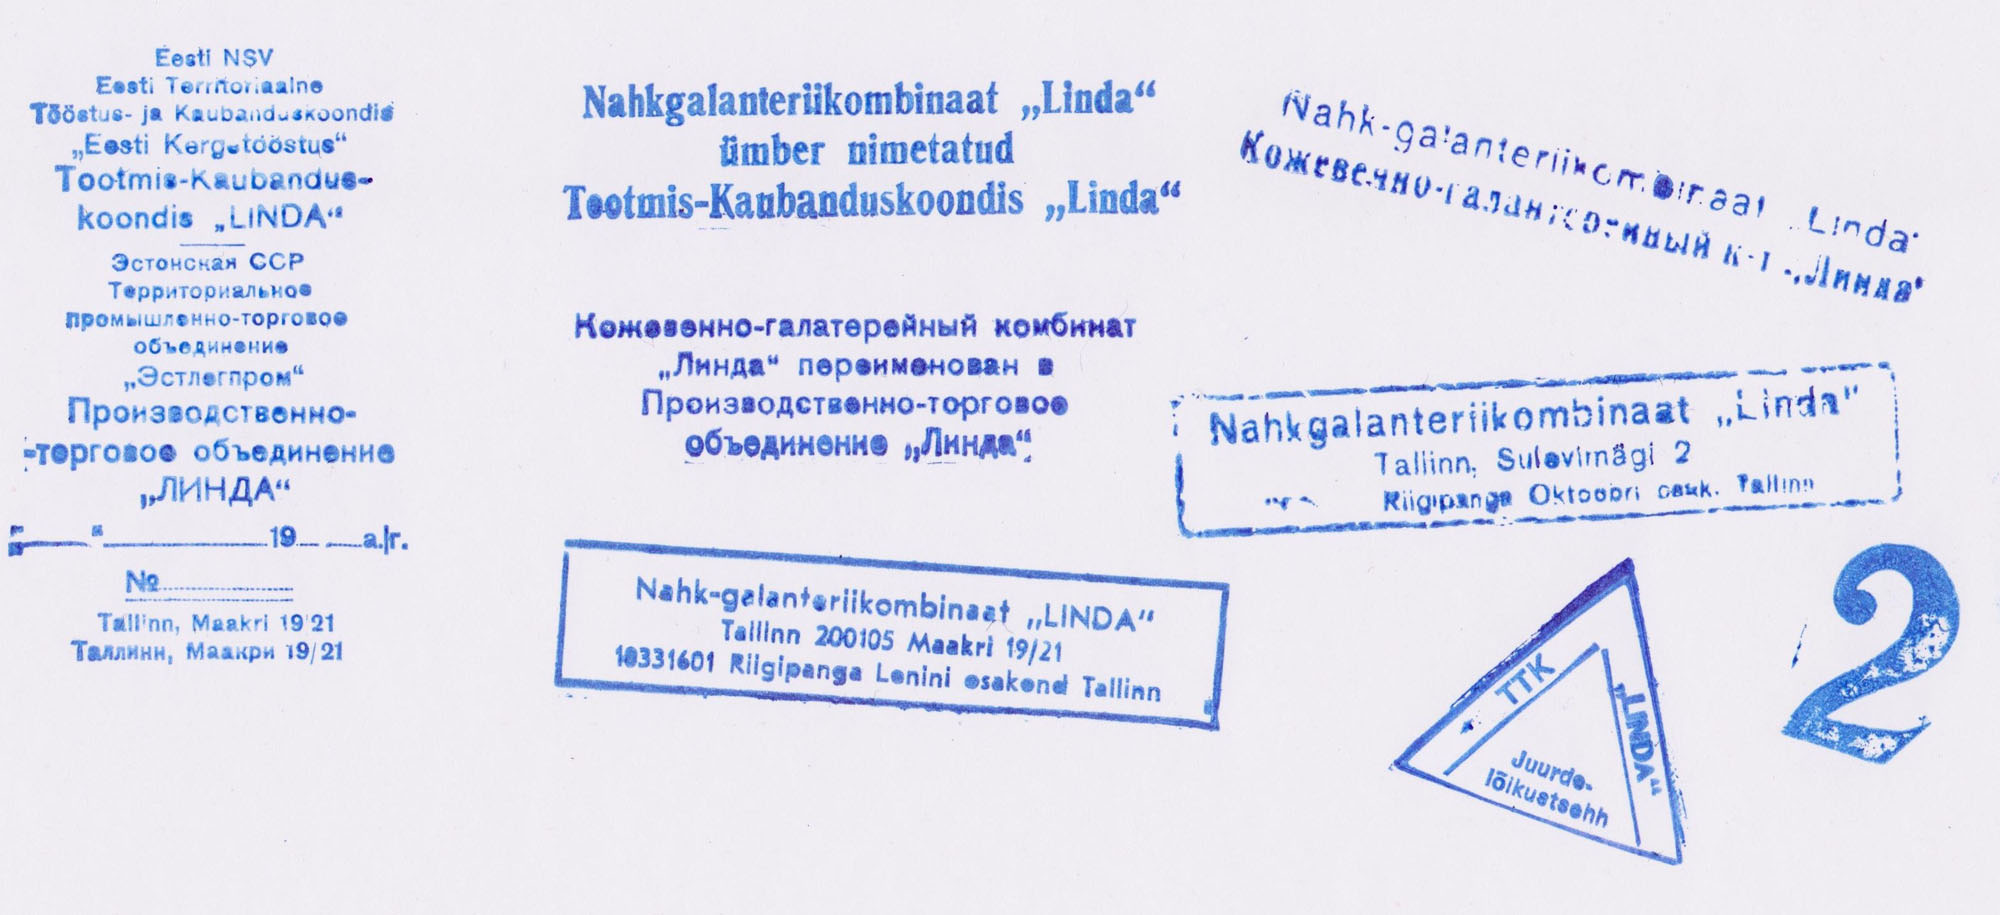 Eesti NSV
Eesti Territoriaalne
Tööstus- ja Kaubanduskoondis
„Eesti Kergetööstus“
Tootmis-Kaubandus-
koondis „LINDA“
Эстонская ССР
Территориальное
промышленно-торговое
объединение
„Эстлегпром“
Производственно-
-торговое объединение
„ЛИНДА“
„ “ 19 a./г.
№
Tallinn, Maakri 19/21
Таллинн, Маакри 19/21
Nahkgalanteriikombinaat „Linda“
ümber nimetatud
Tootmis-Kaubanduskoondis „Linda“
Кожевенно-галатерейный комбинат
„Линда“ переименован в
Производственно-торговое
объединение „Линда“
Nahk-galanteriikombinaat „LINDA“
Tallinn 200105 Maakri 19/21
10331601 Riigipanga Lenini osakond Tallinn
Nahk-galanteriikombinaat „Linda“
Кожевенно-галантерейный к-т „Линда“
Nahkgalanteriikombinaat „Linda“
Tallinn, Sulevimägi 2
Riigipanga Oktoobri osak. Tallinn
TTK
„LINDA“
Juurde-
lõikustsehh
2